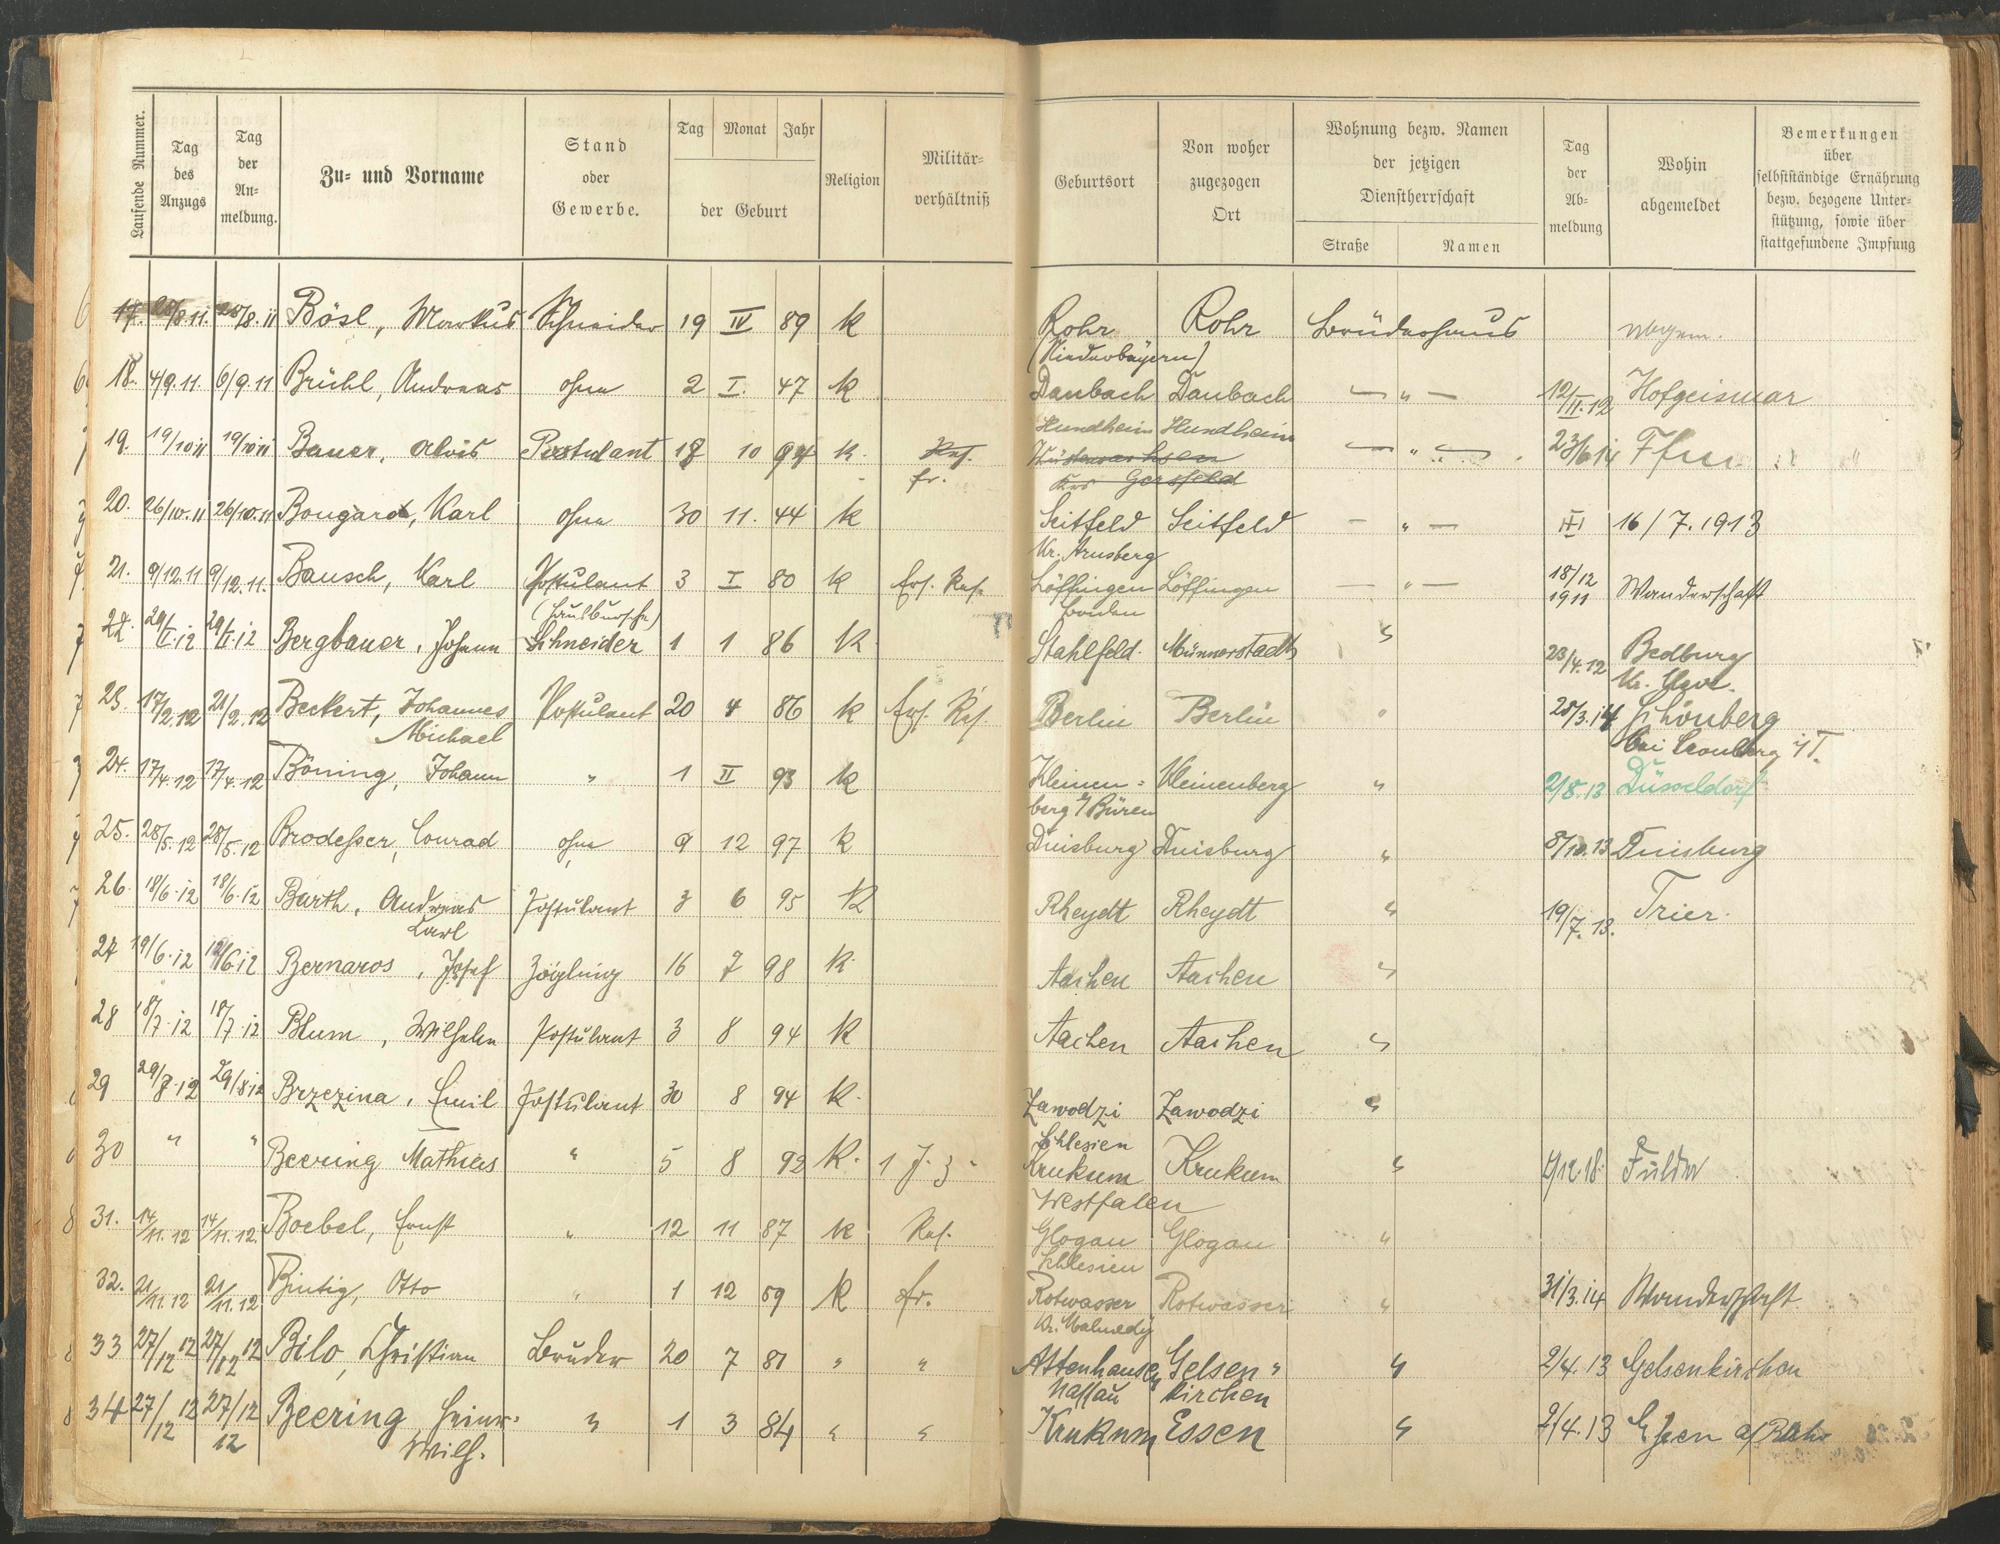 Laufende Nummer.
Tag des Anzugs
Tag der An-meldung.
Zu- und Vorname
Stand oder Gewerbe.
Tag Monat Jahr
der Geburt
Religion
Militär-verhältniß
Geburtsort
Von woher zugezogen Ort
Wohnung bezw. Namen der jetzigen Dienstherrschaft
Straße Namen
Tag der Ab-meldung
Wohin abgemeldet
Bemerkungen über selbstständige Ernährung bezw. bezogene Unter-stützung, sowie über stattgefundene Impfung
17. 28/8.11. 28/8.11 Bösl, Markus Schneider 19 IV 89 k Rohr Rohr Brüderhaus
(Niederbayern)
18. 4/9.11. 6/9.11 Brühl, Andreas ohne 2 I. 47 k Daubach Daubach — „ — 12/II.12 Hofgeismar
Hundheim Hundheim
19. 19/10 11 19/10 11 Bauer, Alois Postulant 18 10 94 k. Res. Wüstensachsen — „ — 23/6 14 Ffm
fr. Krs Gersfeld
20. 26/10.11 26/10.11 Bongard, Karl ohne 30 11. 44 k Seitfeld Seitfeld — „ — 16/7.1913
Kr. Arnsberg
21. 9/12.11 9/12.11. Bausch, Karl Postulant 3 I 80 k Ers. Res. Löffingen Löffingen — „ — 18/12 1911 Wanderschaft
(Hausbursche) Baden
22. 29/I.12 29/I.12 Bergbauer, Johann Schneider 1 1 86 k Stahlfeld. Münnerstadt „ 23/4.12 Bedburg
Kr. Cleve.
23. 17/2.12 21/2.12 Beckert, Johannes Postulant 20 4 86 k Ers. Res. Berlin Berlin „ 28/3.14 Schönberg
Michael bei Cronberg i/T.
24. 17/4.12 17/4.12 Böning, Johann „ 1 II 93 k Kleinen= Kleinenberg „ 2/8.13 Düsseldorf
berg b/Büren
25. 28/5.12 28/5.12 Brodeßer, Conrad ohne 9 12 97 k Duisburg Duisburg „ 8/10.13 Duisburg
26. 18/6.12 18/6.12 Barth, Andreas Postulant 3 6 95 k Rheydt Rheydt „ 19/7.13. Trier.
Carl
27 19/6.12 19/6 12 Bernards, Josef Zögling 16 7 98 k. Aachen Aachen „
28 18/7.12 18/7.12 Blum, Wilhelm Postulant 3 8 94 k Aachen Aachen „
29 29/8.12 29/8 12 Brzezina, Emil Postulant 30 8 94 k. Zawodzi Zawodzi „
Schlesien
30 „ „ Beering Mathias „ 5 8 92 k. 1 J. 3 Krukum Krukum „ 4/12.18. Fulda
Westfalen
31. 14/11.12 14/11.12. Boebel, Ernst „ 12 11 87 k Res. Glogau Glogau „
Schlesien
32. 21/11.12 21/11.12 Bintig, Otto „ 1 12 59 k fr. Rotwasser Rotwasser „ 31/3.14 Wanderschaft
Kr. Malmedy
33 27/12 12 27/12 12 Bilo, Christian Bruder 20 7 81 „ „ Attenhausen Gelsen- „ 2/4.13 Gelsenkirchen
Nassau kirchen
34 27/12 12 27/12 12 Beering Heinr. „ 1 3 84 „ „ Krukum Essen „ 2/4.13 Essen a/Ruhr
Wilh.